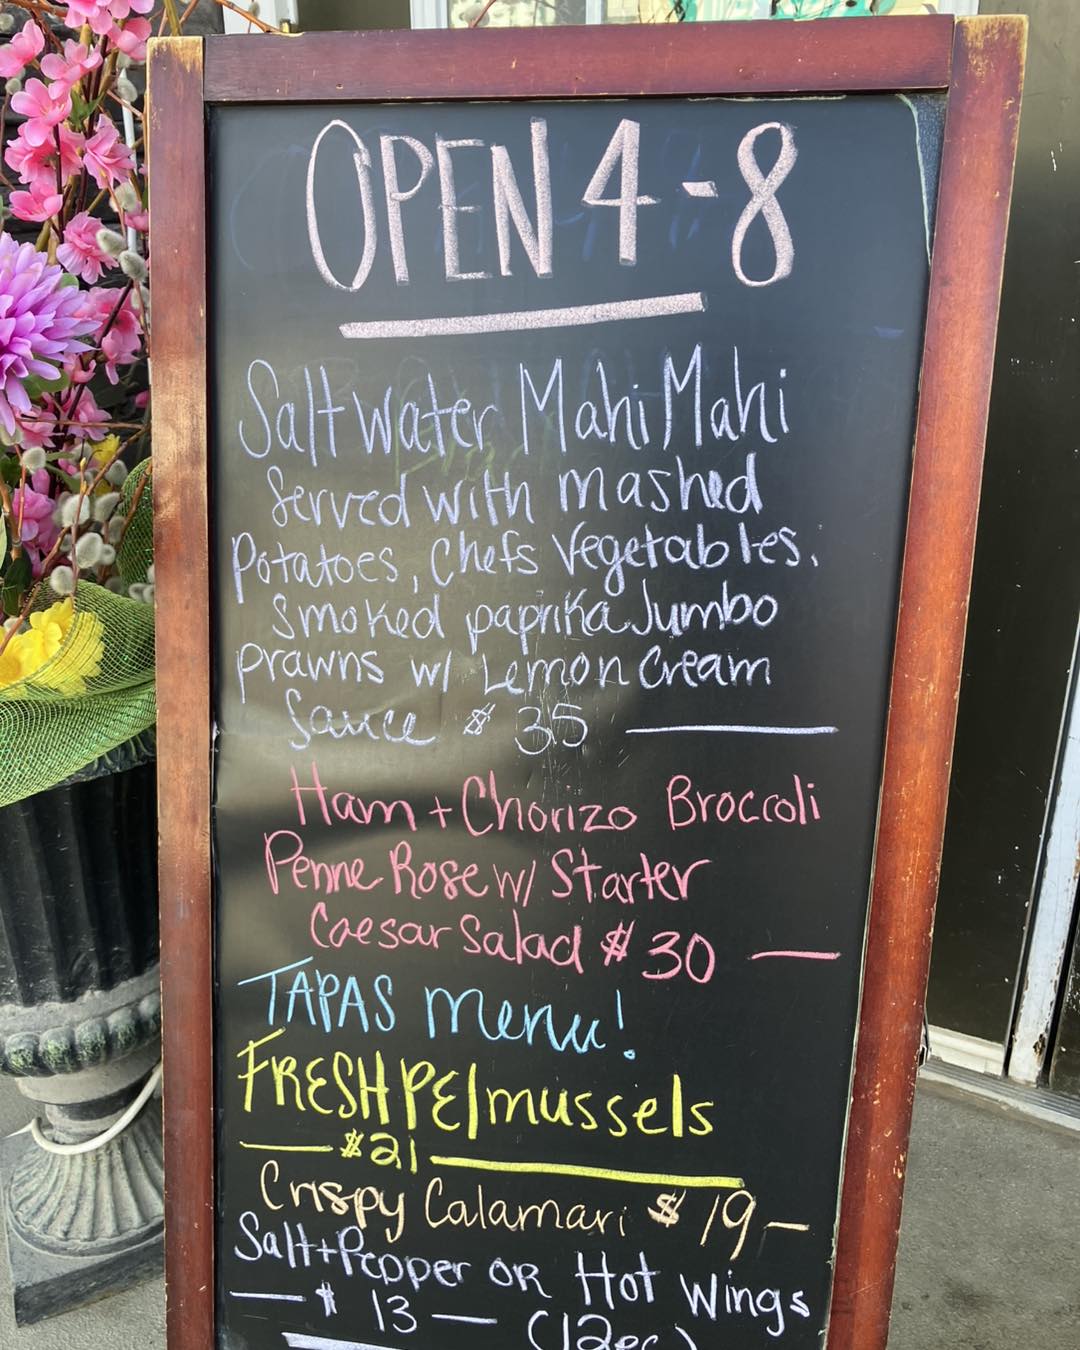 OPEN 4-8
Saltwater Mahi Mahi
Served with mashed
Potatoes, Chefs Vegetables.
Smoked paprika Jumbo
prawns w/ Lemon Cream
Sauce $ 35
Ham + Chorizo Broccoli
Penne Rose w/ Starter
Caesar Salad $30
TAPAS Menu!
FRESH PEI mussels
$21
Crispy Calamari $19
Salt+Pepper OR Hot Wings
$ 13 (12pc)